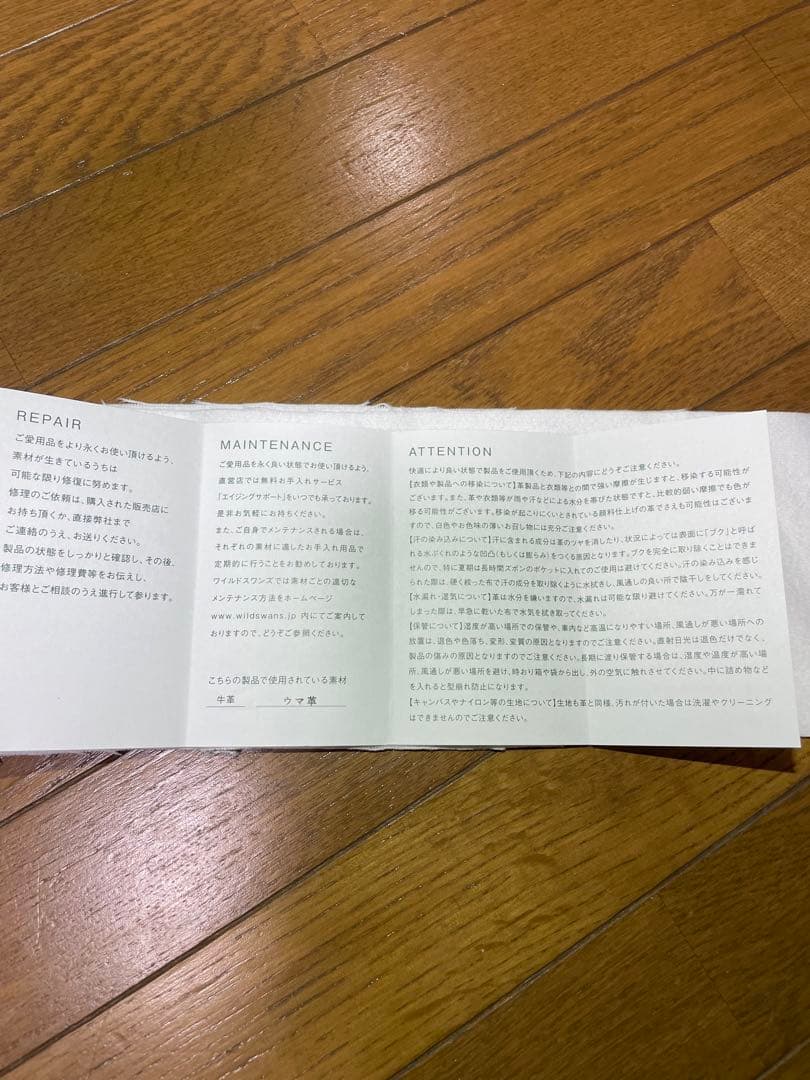 REPAIR
ご愛用品をより永くお使い頂けるよう、
素材が生きているうちは
可能な限り修復に努めます。
修理のご依頼は、購入された販売店に
お持ち頂くか、直接弊社まで
ご連絡のうえ、お送りください。
製品の状態をしっかりと確認し、その後、
修理方法や修理費等をお伝えし、
お客様とご相談のうえ進行して参ります。
MAINTENANCE
ご愛用品を永く良い状態でお使い頂けるよう、
直営店では無料お手入れサービス
「エイジングサポート」をいつでも承っております。
是非お気軽にお持ちください。
また、ご自身でメンテナンスされる場合は、
それぞれの素材に適したお手入れ用品で
定期的に行うことをお勧めしております。
ワイルドスワンズでは素材ごとの適切な
メンテナンス方法をホームページ
www.wildswans.jp 内にてご案内して
おりますので、どうぞご参照ください。
こちらの製品で使用されている素材
牛革 ウマ革
ATTENTION
快適により良い状態で製品をご使用頂くため、下記の内容にどうぞご注意ください。
【衣類や製品への移染について】革製品と衣類等との間で強い摩擦が生じますと、移染する可能性が
ございます。また、革や衣類等が雨や汗などによる水分を帯びた状態ですと、比較的弱い摩擦でも色が
移る可能性がございます。移染が起こりにくいとされている顔料仕上げの革でさえも可能性はございま
すので、白色やお色味の薄いお召し物には充分ご注意ください。
【汗の染み込みについて】汗に含まれる成分は革のツヤを消したり、状況によっては表面に「ブク」と呼ば
れる水ぶくれのような凹凸(もしくは膨らみ)をつくる原因となります。ブクを完全に取り除くことはできま
せんので、特に夏期は長時間ズボンのポケットに入れてのご使用は避けてください。汗の染み込みを感じ
られた際は、硬く絞った布で汗の成分を取り除くように水拭きし、風通しの良い所で陰干しをしてください。
【水濡れ・湿気について】革は水分を嫌いますので、水濡れは可能な限り避けてください。万が一濡れて
しまった際は、早急に乾いた布で水気を拭き取ってください。
【保管について】湿度が高い場所での保管や、車内など高温になりやすい場所、風通しが悪い場所への
放置は、退色や色落ち、変形、変質の原因となりますのでご注意ください。直射日光は退色だけでなく、
製品の傷みの原因となりますのでご注意ください。長期に渡り保管する場合は、湿度や温度が高い場
所、風通しが悪い場所を避け、時おり箱や袋から出し、外の空気に触れさせてください。中に詰め物など
を入れると型崩れ防止になります。
【キャンバスやナイロン等の生地について】生地も革と同様、汚れが付いた場合は洗濯やクリーニング
はできませんのでご注意ください。